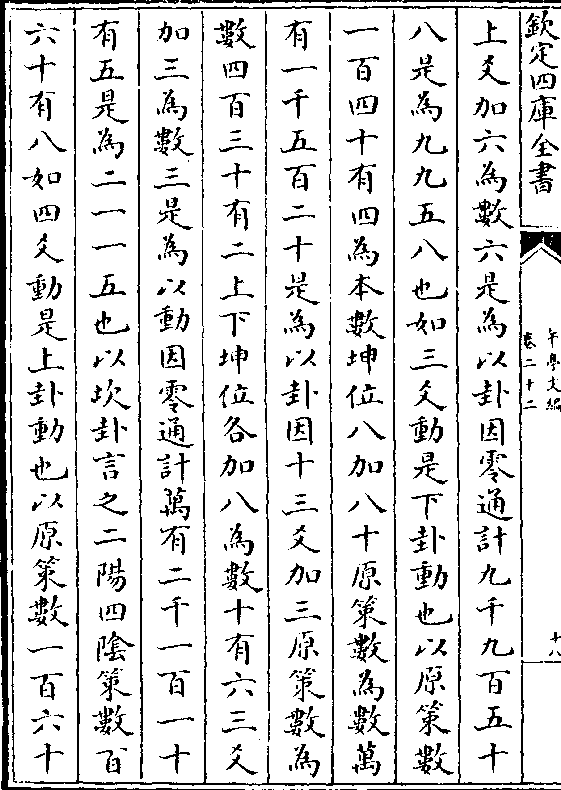 欽定四庫全書
午亭文編
卷二十二
十八
上爻加六為數六是為以卦因零通計九千九百五十
八是為九九五八也如三爻動是下卦動也以原策數
一百四十有四為本數坤位八加八十原策數為數萬
有一千五百二十是為以卦因十三爻加三原策數為
數四百三十有二上下坤位各加八為數十有六三爻
加三為數三是為以動因零通計萬有二千一百一十
有五是為二一一五也以坎卦言之二陽四陰策數百
六十有八如四爻動是上卦動也以原策數一百六十